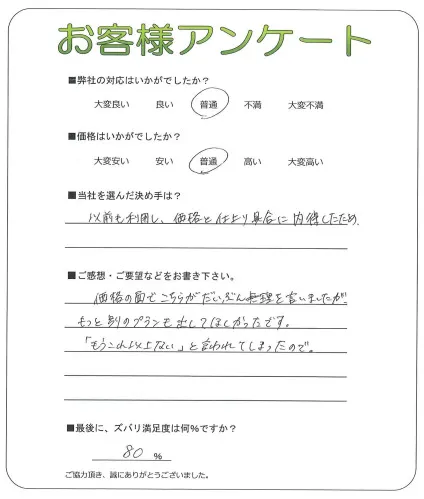 お客様アンケート
■弊社の対応はいかがでしたか？
大変良い 良い 普通 不満 大変不満
■価格はいかがでしたか？
大変安い 安い 普通 高い 大変高い
■当社を選んだ決め手は？
以前も利用し、価格と仕上り具合に内得したため
■ご感想・ご要望などをお書き下さい。
価格の面でこちらがだいぶん無理を言いましたが
もっと別のプランも出してほしかったです。
「もうこれ以上ない」と言われてしまったので。
■最後に、ズバリ満足度は何％ですか？
80 ％
ご協力頂き、誠にありがとうございました。